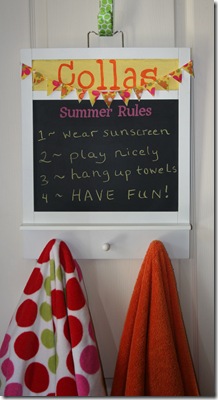 Collas
Summer Rules
1~ wear sunscreen
2~ play nicely
3~ hang up towels
4~ HAVE FUN!